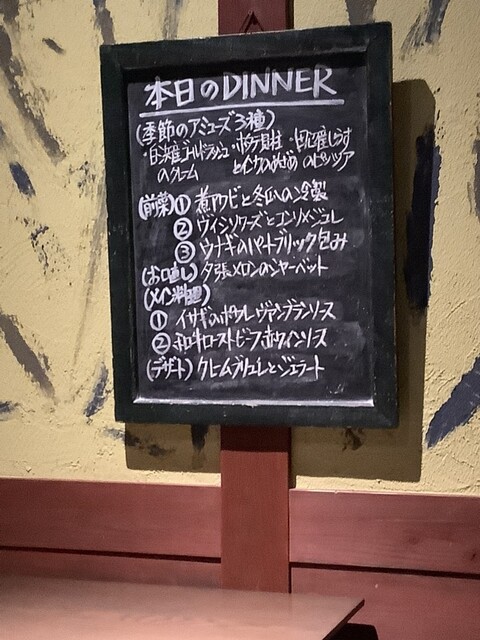 本日のDINNER
(季節のアミューズ3種)
・白浜産ゴールドラッシュ ・ホタテ貝柱 ・国産しらす
のクレーム とイカのあぜあ のピッツア
(前菜) ① 煮アワビと冬瓜の冷製
② ヴィシソワーズとコンソメジュレ
③ ウナギのパートブリック包み
(お口直し) 夕張メロンのシャーベット
(メイン料理)
① イサギのポワレ ヴァンブランソース
② 和牛ローストビーフ 赤ワインソース
(デザート) クレームブリュレとジェラート